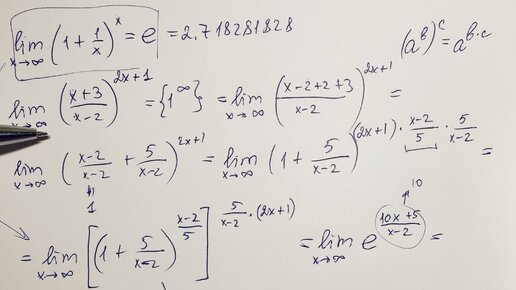 lim x→∞ (1 + 1/x)^x = e = 2.718281828
(a^b)^c = a^(b·c)
lim x→∞ ((x+3)/(x-2))^(2x+1) = {1^∞} = lim x→∞ ((x-2+2+3)/(x-2))^(2x+1) =
lim x→∞ ((x-2)/(x-2) + 5/(x-2))^(2x+1) = lim x→∞ (1 + 5/(x-2))^((2x+1)·(x-2)/5·5/(x-2)) =
1
10
= lim x→∞ [(1 + 5/(x-2))^((x-2)/5)]^(5/(x-2)·(2x+1)) = lim x→∞ e^((10x+5)/(x-2)) =